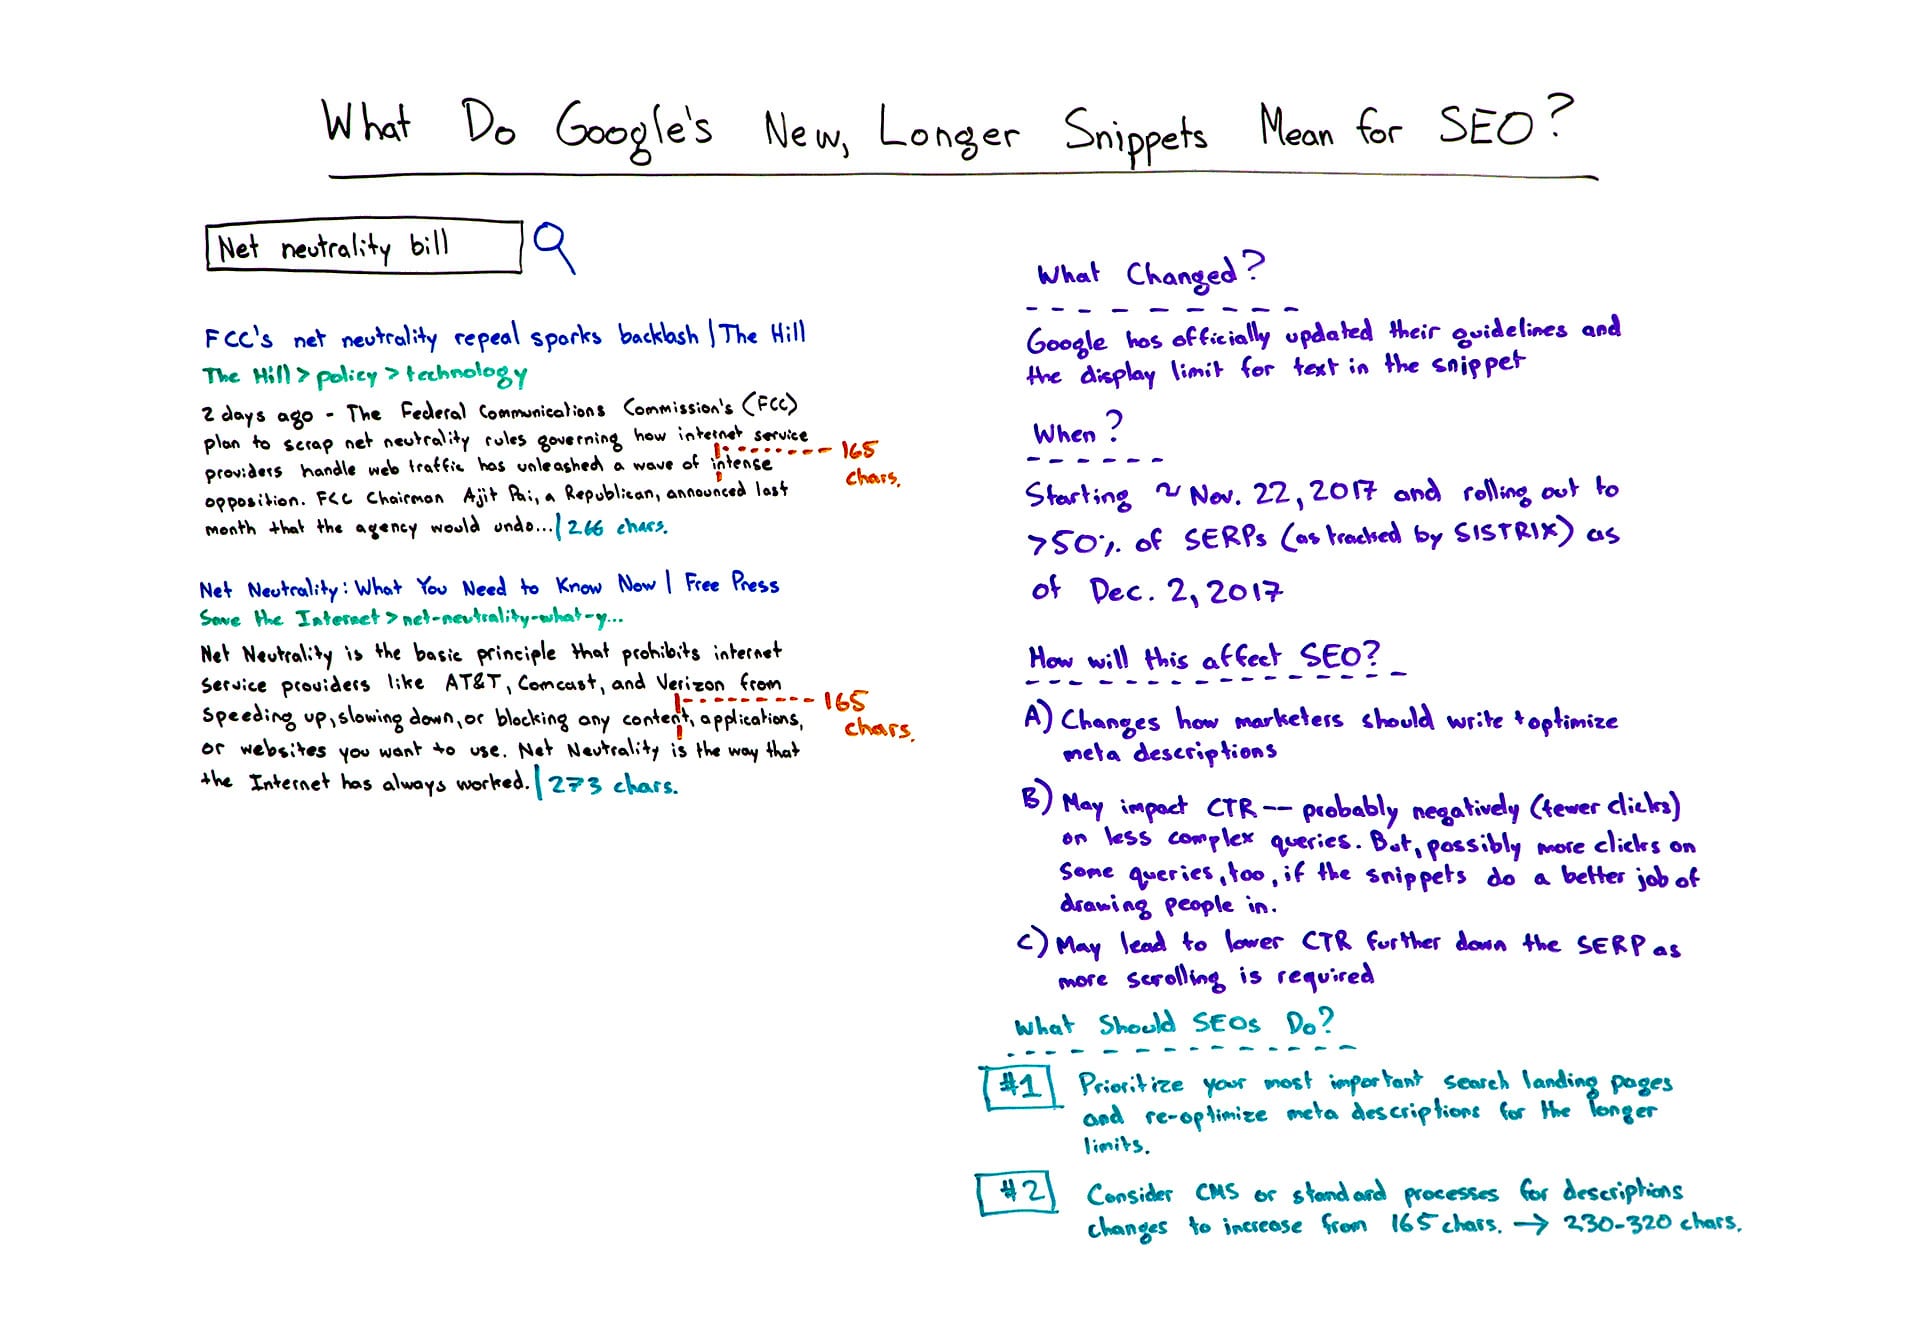 What Do Google's New, Longer Snippets Mean for SEO?
Net neutrality bill
FCC's net neutrality repeal sparks backlash | The Hill
The Hill > policy > technology
2 days ago - The Federal Communications Commission's (FCC)
plan to scrap net neutrality rules governing how internet service
providers handle web traffic has unleashed a wave of intense
opposition. FCC Chairman Ajit Pai, a Republican, announced last
month that the agency would undo...| 266 chars.
165
chars.
Net Neutrality: What You Need to Know Now | Free Press
Save the Internet > net-neutrality-what-y...
Net Neutrality is the basic principle that prohibits internet
service providers like AT&T, Comcast, and Verizon from
speeding up, slowing down, or blocking any content, applications,
or websites you want to use. Net Neutrality is the way that
the Internet has always worked. | 273 chars.
165
chars.
What Changed?
Google has officially updated their guidelines and
the display limit for text in the snippet
When?
Starting ~ Nov. 22, 2017 and rolling out to
>50% of SERPs (as tracked by SISTRIX) as
of Dec. 2, 2017
How will this affect SEO?
A) Changes how marketers should write + optimize
meta descriptions
B) May impact CTR -- probably negatively (fewer clicks)
on less complex queries. But, possibly more clicks on
some queries, too, if the snippets do a better job of
drawing people in.
C) May lead to lower CTR further down the SERP as
more scrolling is required
What Should SEOs Do?
#1 Prioritize your most important search landing pages
and re-optimize meta descriptions for the longer
limits.
#2 Consider CMS or standard processes for descriptions
changes to increase from 165 chars. → 230-320 chars.